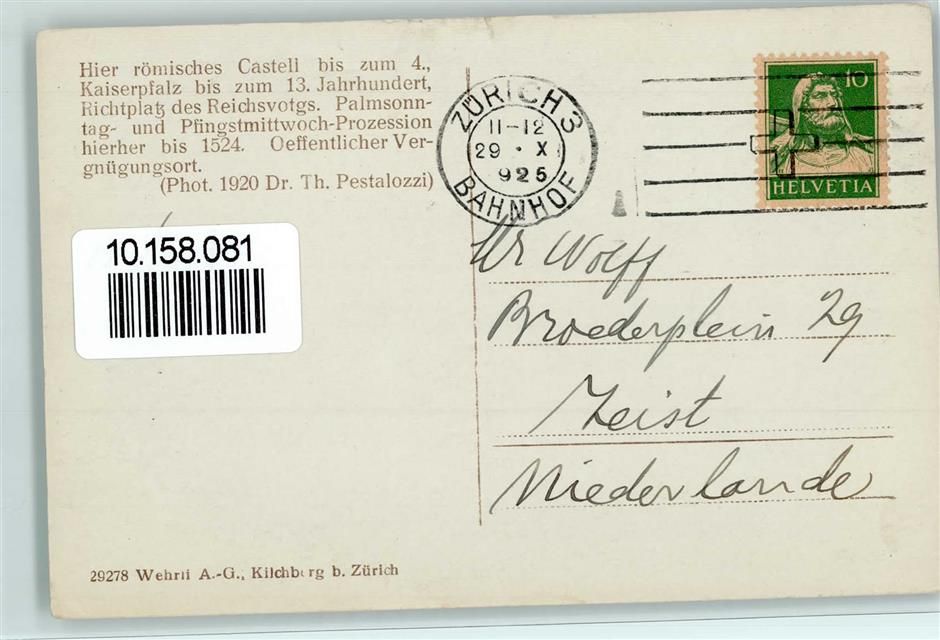 Hier römisches Castell bis zum 4.,
Kaiserpfalz bis zum 13. Jahrhundert,
Richtplatz des Reichsvotgs. Palmsonn-
tag- und Pfingstmittwoch-Prozession
hierher bis 1524. Oeffentlicher Ver-
gnügungsort.
(Phot. 1920 Dr. Th. Pestalozzi)
ZÜRICH 3
11-12
29 · X
925
BAHNHOF
10
HELVETIA
10.158.081
Wolff
Broederplein 29
Zeist
Niederlande
29278 Wehrli A.-G., Kilchberg b. Zürich